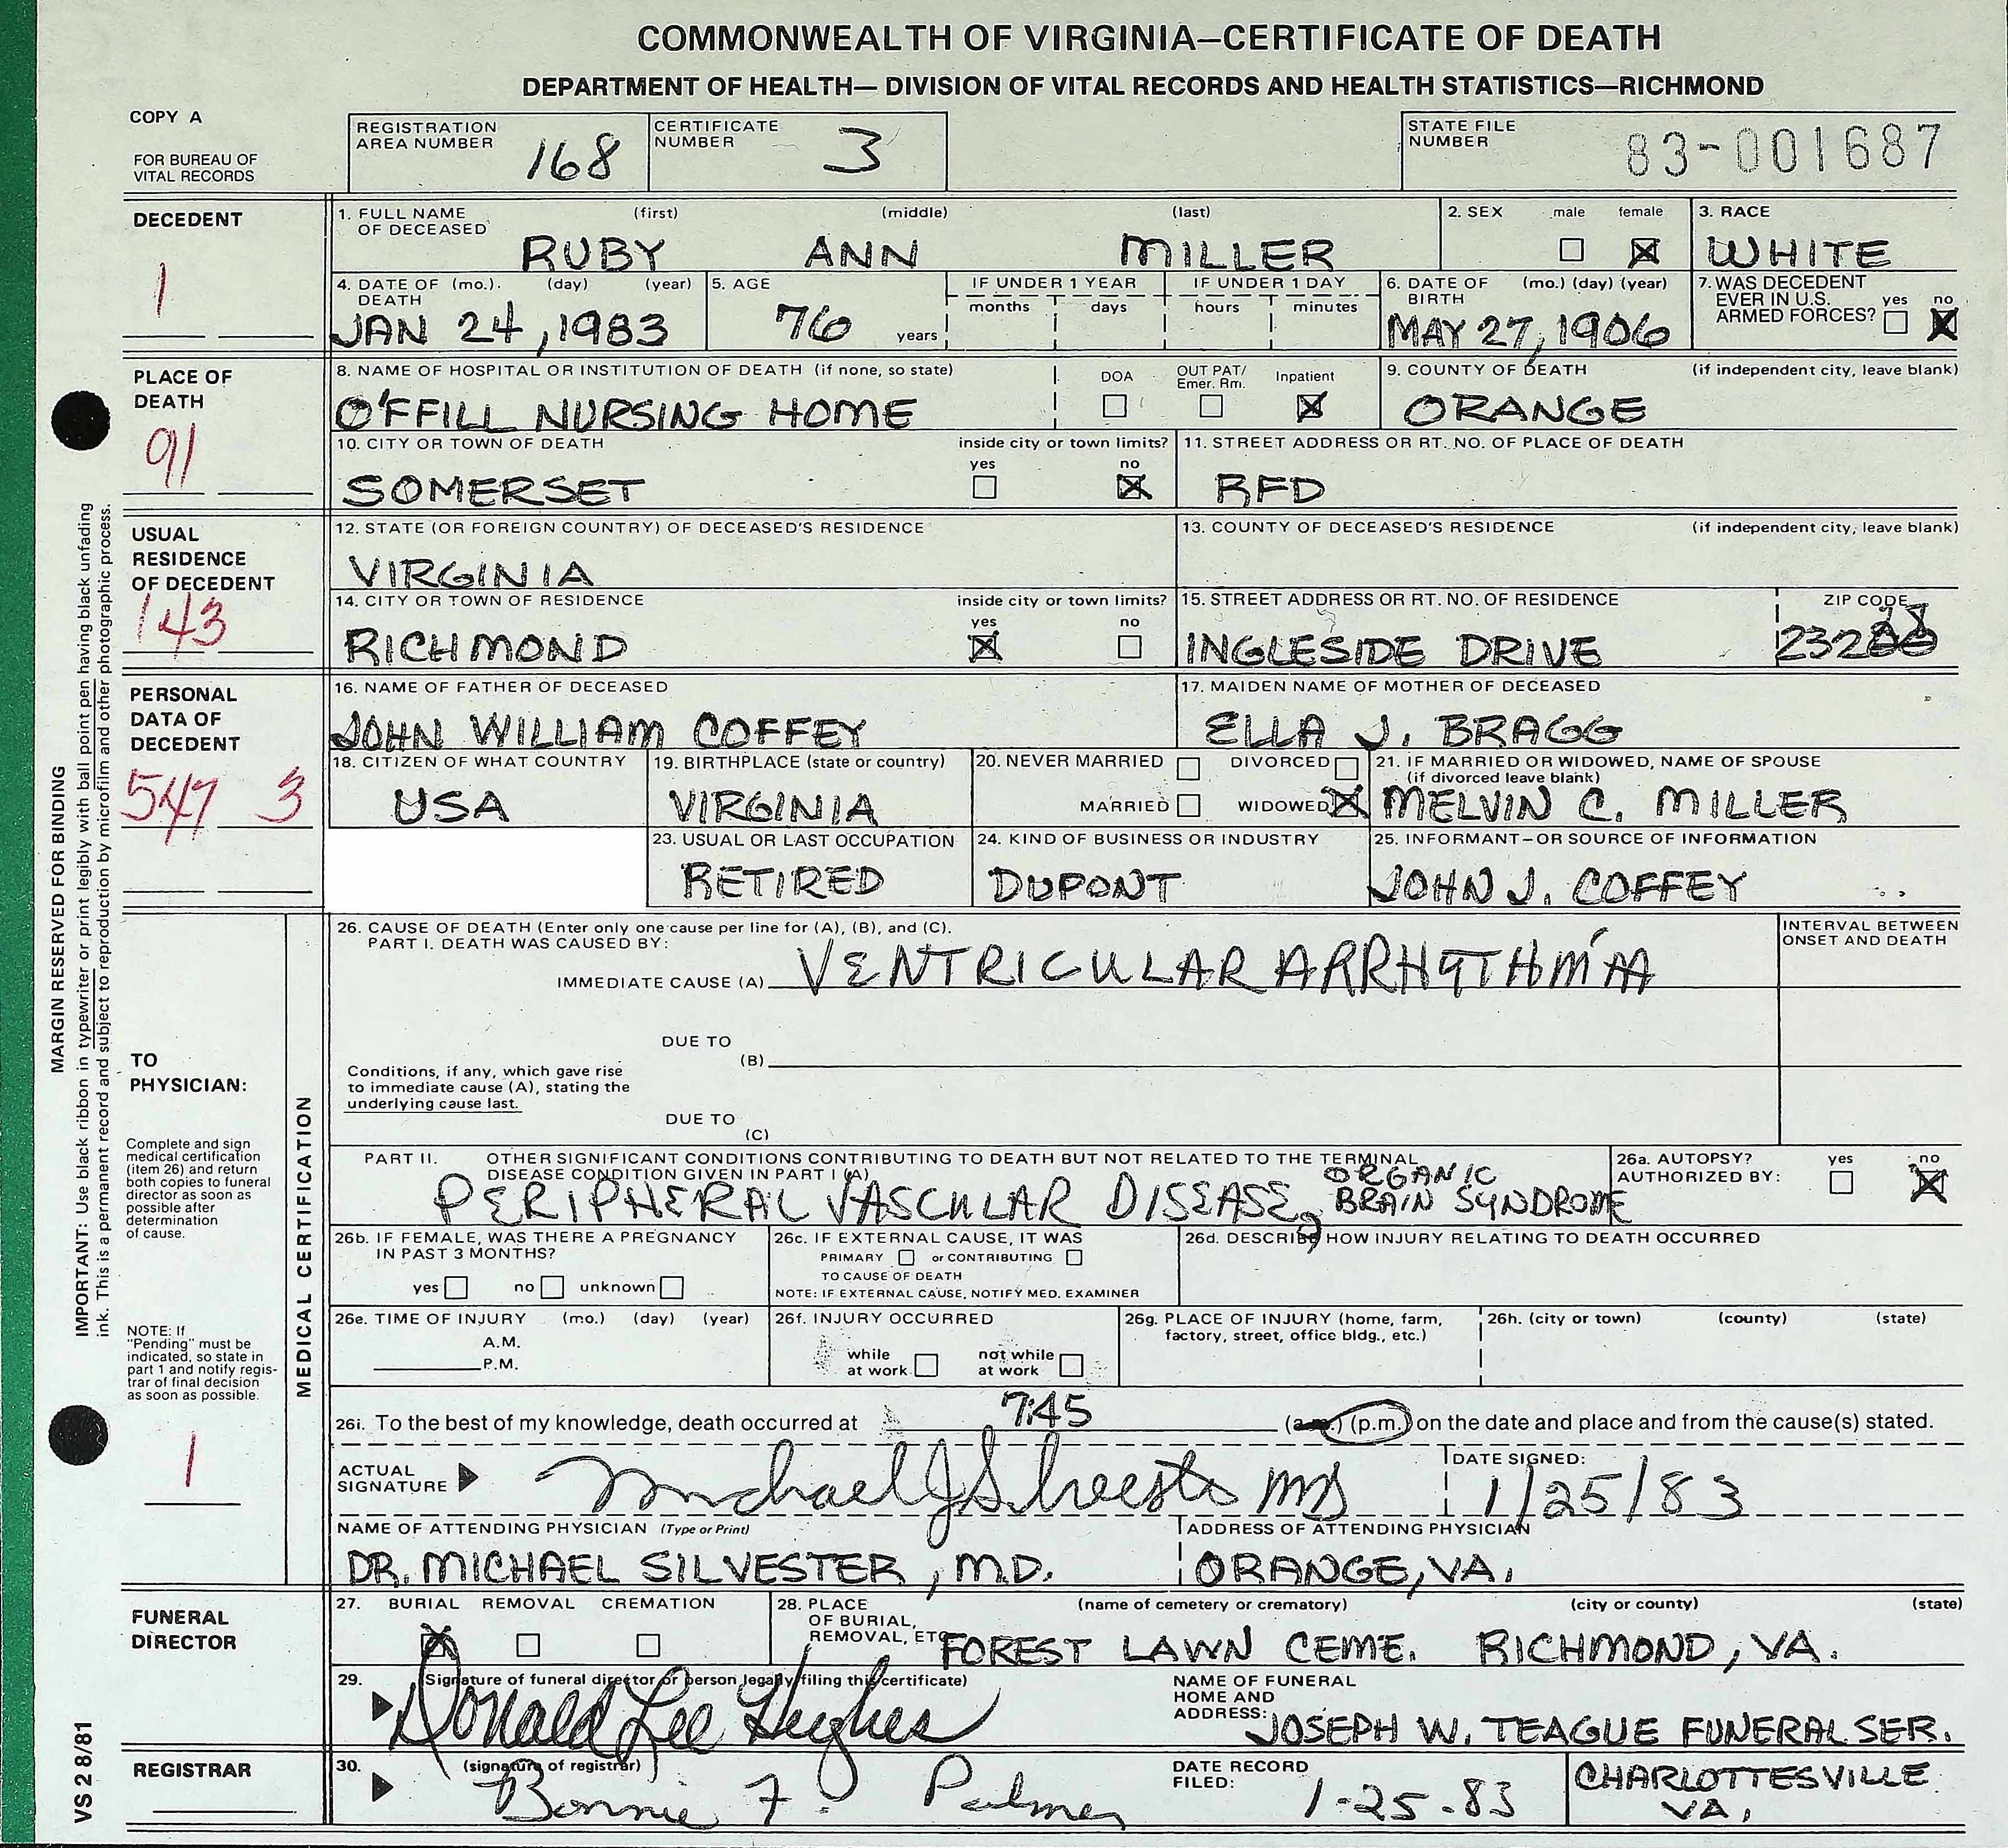 COMMONWEALTH OF VIRGINIA—CERTIFICATE OF DEATH
DEPARTMENT OF HEALTH— DIVISION OF VITAL RECORDS AND HEALTH STATISTICS—RICHMOND
COPY A
FOR BUREAU OF
VITAL RECORDS
REGISTRATION
AREA NUMBER 168
CERTIFICATE
NUMBER 3
STATE FILE
NUMBER 83-001687
DECEDENT
1
1. FULL NAME (first) (middle) (last)
OF DECEASED
RUBY ANN MILLER
2. SEX male female
3. RACE
WHITE
4. DATE OF (mo.) (day) (year)
DEATH
JAN 24, 1983
5. AGE
76 years
IF UNDER 1 YEAR
months days
IF UNDER 1 DAY
hours minutes
6. DATE OF (mo.) (day) (year)
BIRTH
MAY 27, 1906
7. WAS DECEDENT
EVER IN U.S. yes no
ARMED FORCES?
PLACE OF
DEATH
91
8. NAME OF HOSPITAL OR INSTITUTION OF DEATH (if none, so state)
O'FFILL NURSING HOME
DOA OUT PAT/
Emer. Rm. Inpatient
9. COUNTY OF DEATH (if independent city, leave blank)
ORANGE
10. CITY OR TOWN OF DEATH inside city or town limits?
yes no
SOMERSET
11. STREET ADDRESS OR RT. NO. OF PLACE OF DEATH
RFD
USUAL
RESIDENCE
OF DECEDENT
143
12. STATE (OR FOREIGN COUNTRY) OF DECEASED'S RESIDENCE
VIRGINIA
13. COUNTY OF DECEASED'S RESIDENCE (if independent city, leave blank)
14. CITY OR TOWN OF RESIDENCE inside city or town limits?
yes no
RICHMOND
15. STREET ADDRESS OR RT. NO. OF RESIDENCE ZIP CODE
INGLESIDE DRIVE
PERSONAL
DATA OF
DECEDENT
547 3
16. NAME OF FATHER OF DECEASED
JOHN WILLIAM COFFEY
17. MAIDEN NAME OF MOTHER OF DECEASED
ELLA J. BRAGG
18. CITIZEN OF WHAT COUNTRY
USA
19. BIRTHPLACE (state or country)
VIRGINIA
20. NEVER MARRIED DIVORCED
MARRIED WIDOWED
21. IF MARRIED OR WIDOWED, NAME OF SPOUSE
(if divorced leave blank)
MELVIN C. MILLER
23. USUAL OR LAST OCCUPATION
RETIRED
24. KIND OF BUSINESS OR INDUSTRY
DUPONT
25. INFORMANT—OR SOURCE OF INFORMATION
JOHN J. COFFEY
MARGIN RESERVED FOR BINDING
IMPORTANT: Use black ribbon in typewriter or print legibly with ball point pen having black unfading
ink. This is a permanent record and subject to reproduction by microfilm and other photographic process.
TO
PHYSICIAN:
Complete and sign
medical certification
(item 26) and return
both copies to funeral
director as soon as
possible after
determination
of cause.
NOTE: If
"Pending" must be
indicated, so state in
part 1 and notify regis-
trar of final decision
as soon as possible.
1
MEDICAL CERTIFICATION
26. CAUSE OF DEATH (Enter only one cause per line for (A), (B), and (C).
PART I. DEATH WAS CAUSED BY:
INTERVAL BETWEEN
ONSET AND DEATH
IMMEDIATE CAUSE (A) VENTRICULAR ARRHYTHMIA
DUE TO
(B)
Conditions, if any, which gave rise
to immediate cause (A), stating the
underlying cause last.
DUE TO
(C)
PART II. OTHER SIGNIFICANT CONDITIONS CONTRIBUTING TO DEATH BUT NOT RELATED TO THE TERMINAL
DISEASE CONDITION GIVEN IN PART I (A)
PERIPHERAL VASCULAR DISEASE, ORGANIC
BRAIN SYNDROME
26a. AUTOPSY? yes no
AUTHORIZED BY:
26b. IF FEMALE, WAS THERE A PREGNANCY
IN PAST 3 MONTHS?
yes no unknown
26c. IF EXTERNAL CAUSE, IT WAS
PRIMARY or CONTRIBUTING
TO CAUSE OF DEATH
NOTE: IF EXTERNAL CAUSE, NOTIFY MED. EXAMINER
26d. DESCRIBE HOW INJURY RELATING TO DEATH OCCURRED
26e. TIME OF INJURY (mo.) (day) (year)
A.M.
P.M.
26f. INJURY OCCURRED
while not while
at work at work
26g. PLACE OF INJURY (home, farm,
factory, street, office bldg., etc.)
26h. (city or town) (county) (state)
26i. To the best of my knowledge, death occurred at 7:45 (a.m.) (p.m.) on the date and place and from the cause(s) stated.
ACTUAL
SIGNATURE Michael J Silvester MD
DATE SIGNED:
1/25/83
NAME OF ATTENDING PHYSICIAN (Type or Print)
DR. MICHAEL SILVESTER, M.D.
ADDRESS OF ATTENDING PHYSICIAN
ORANGE, VA.
FUNERAL
DIRECTOR
27. BURIAL REMOVAL CREMATION
28. PLACE (name of cemetery or crematory) (city or county) (state)
OF BURIAL,
REMOVAL, ETC
FOREST LAWN CEME. RICHMOND, VA.
29. Signature of funeral director or person legally filing this certificate)
Donald Lee Hughes
NAME OF FUNERAL
HOME AND
ADDRESS:
JOSEPH W. TEAGUE FUNERAL SER.
CHARLOTTESVILLE
VA.
REGISTRAR
30. (signature of registrar)
Bonnie F. Palmer
DATE RECORD
FILED: 1-25-83
VS 2 8/81